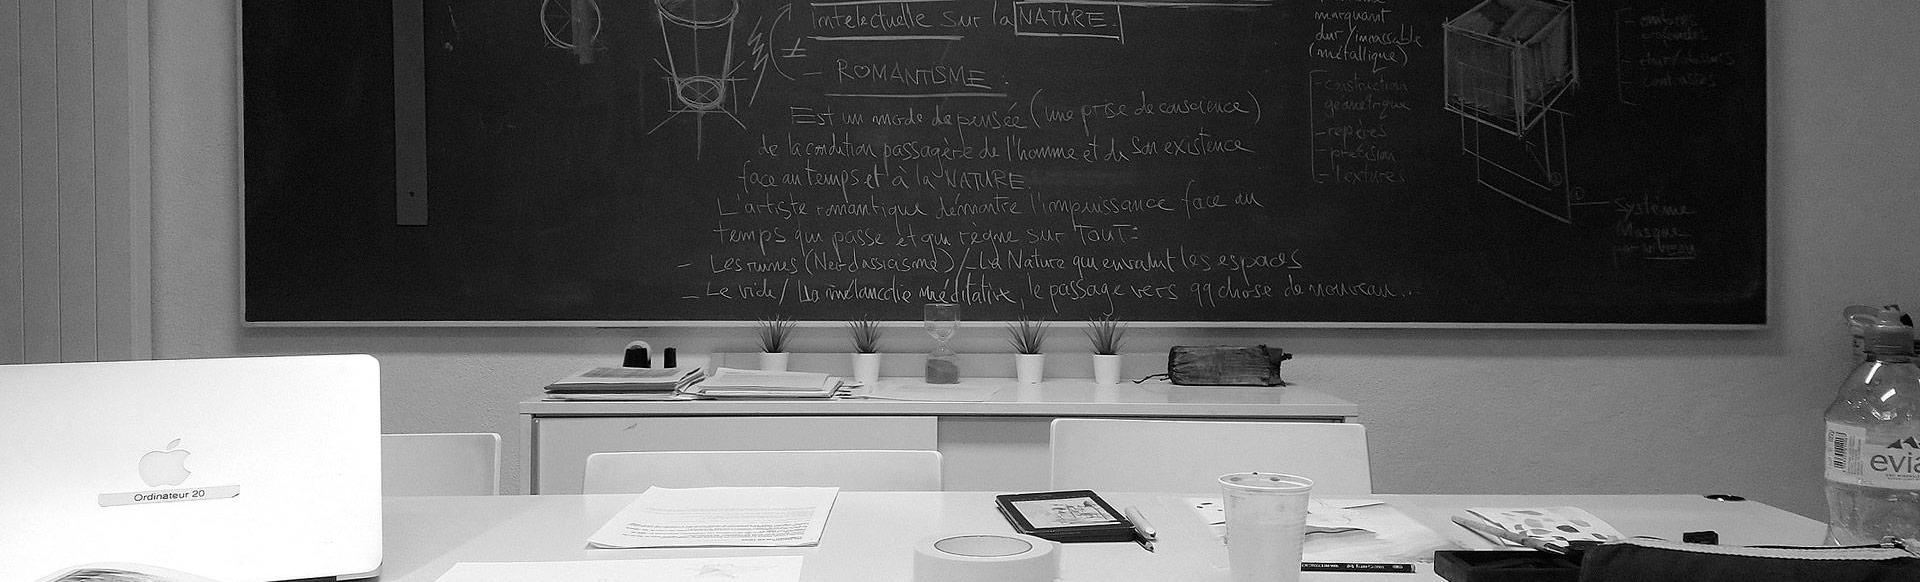 Intelectuelle sur la NATURE.
≠
- ROMANTISME :
Est un mode de pensée (une prise de conscience)
de la condition passagère de l'homme et de son existence
face au temps et à la NATURE.
L'artiste romantique démontre l'impuissance face au
temps qui passe et qui règne sur TOUT :
- Les ruines (Neoclassicisme) / La Nature qui envahit les espaces
- Le vide / La mélancolie méditative, le passage vers qq chose de nouveau...
marquant
dur / incassable
(métallique)
- construction
géometrique
- repères
- précision
- textures
- ombres
profondes
- contrastes
①
Système
Masque
Ordinateur 20
evia